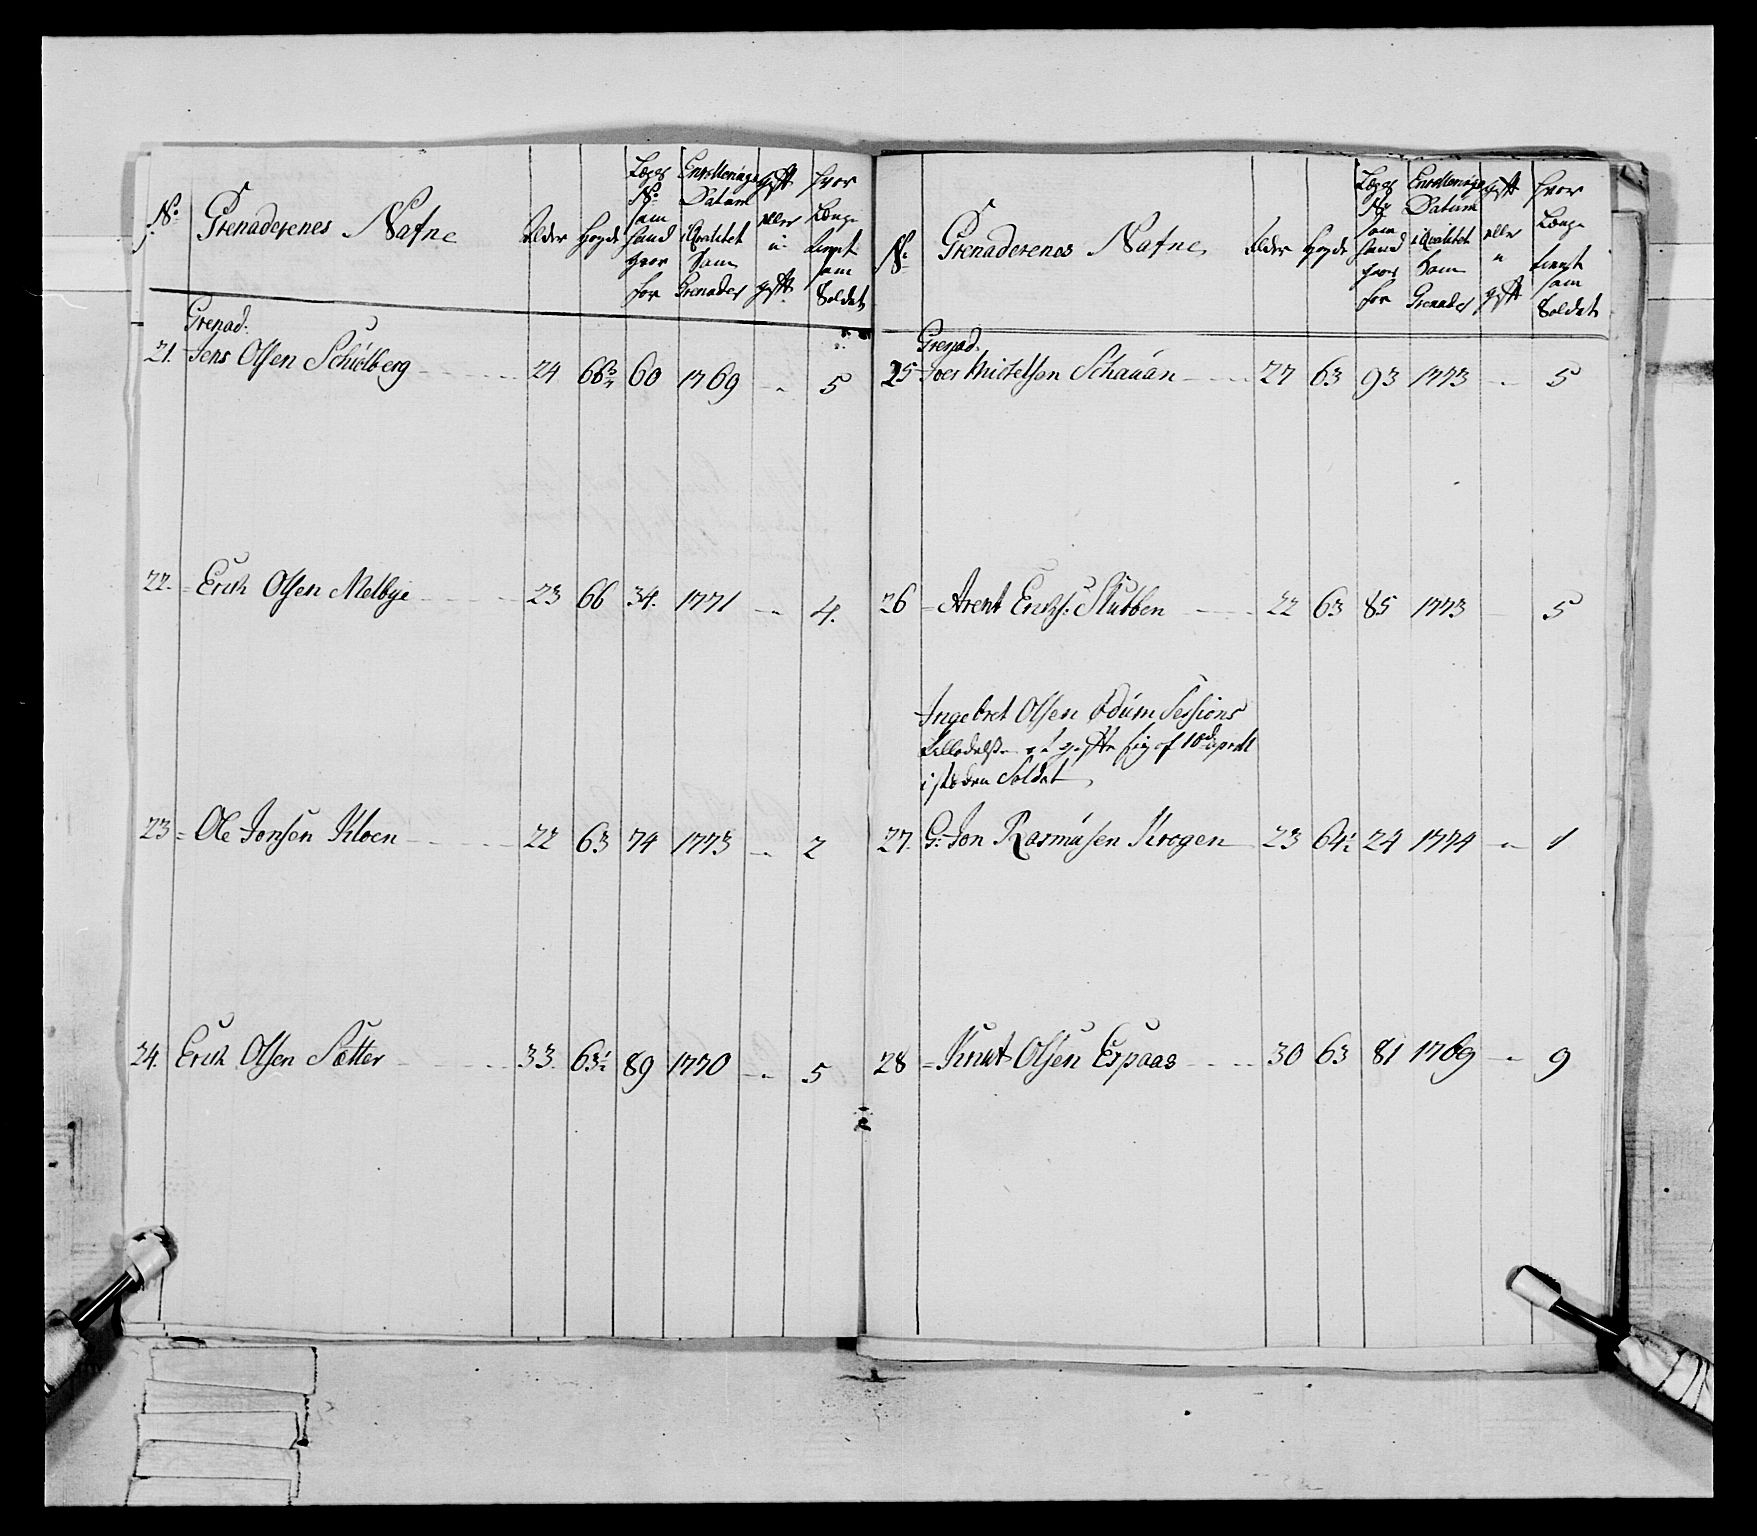 No
Grenaderenes Nafne
Alder
Høyde
Lægs No som hand giør for
Enrollerings Datum i Qvalitet som Grenader
gift eller u- gift
hvor Længe tient som Soldat
Grenad:
21. Jens Olsen Schiølberg 24 66 3/4 60 1769 5
22. Erich Olsen Melbye 23 66 34. 1771 4.
23 Ole Jonsen Kloen 22 63 74 1773 2
24. Erich Olsen Sætter 33. 63½ 89 1770 5
No
Grenaderenes Nafne
Alder
Høyde
Lægs No som hand giør for
Enrollerings Datum i Qvalitet som Grenader
gift eller u gift
hvor Længe tient som Soldat
Grenad.
25 Joes Michelsen Schauan 27 63 93 1773 5
26 Arent Erichs: Stubben 22 63 85 1773 5
Ingebret Olsen Ødum Sessions
Tilladelse at gifte sig af 10de april
isteden Soldat
27. G: Jon Rasmusen Krogen 23 64½ 24 1774 1
28 Knut Olsen Espaas 30 63 81 1769 9